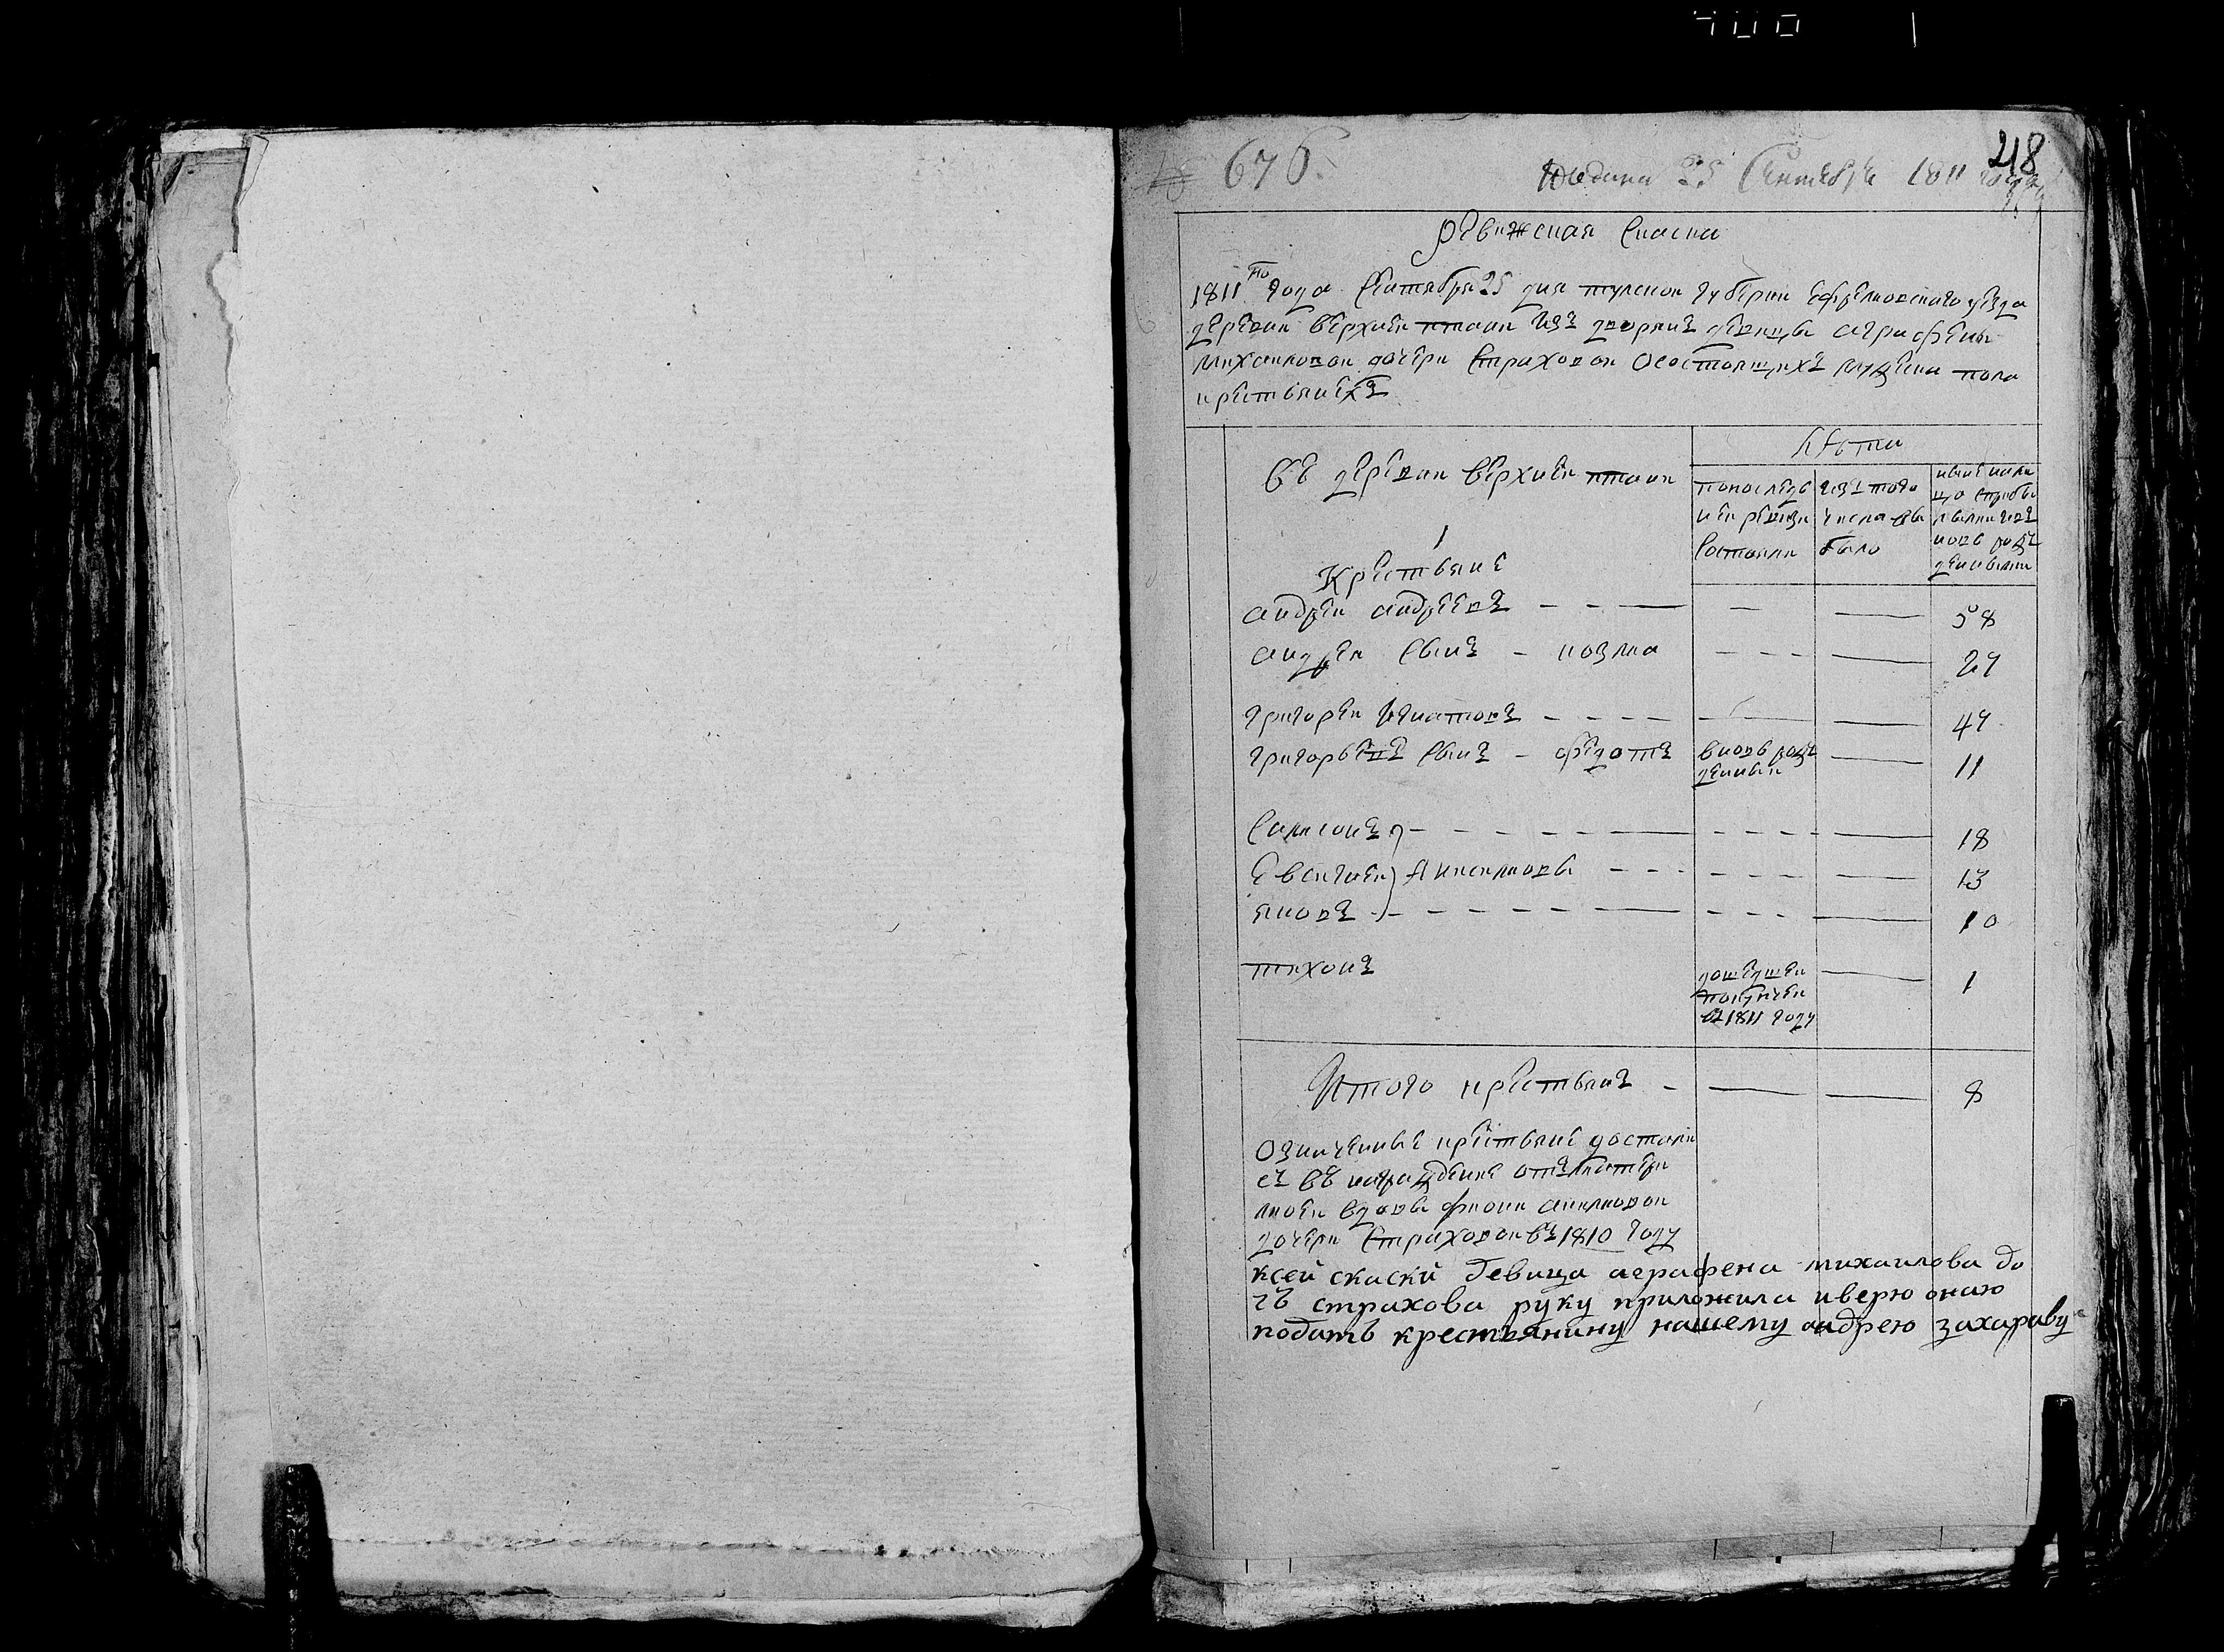 400
676.
Подана 25 Сентября 1811 года
218
Ревижская Скаска
1811 го года Сентября 25 дня тулской губернии ефремовскаго уезда
деревни верхней изъ дворянъ девицы аграфены
михаиловой дочери Страховой О состоящихъ мужска пола
крестьянехъ
Въ деревни верхней
Лѣта
попоследь
ней ревизи
Состояли
изъ того
числа вы
было
ныне нали
цо с прибы
лыми и
новь рож
денными
1
Крестьяне
андрей андреевъ — — — 58
андрея Сынъ - козма — — 29
григорей Игнатовъ — — — 49
григорьевъ Сынъ - федотъ
вновь рож
денный
— 11
Самсонъ — — — 18
Евсигней Анисимовы — — — 13
яковъ — — — 10
тихонъ
дошедшей
покупкей
въ 1811 году
— 1
Итого крестьянъ - — — 8
Означенные крестьяне достали
сь въ награждение отъ матери
моей вдовы дочери Страховой въ 1810 году
ксей скаски девица аграфена михаилова до
чь страхова руку приложила иверю оною
подать крестьянину нашему андрею захараву